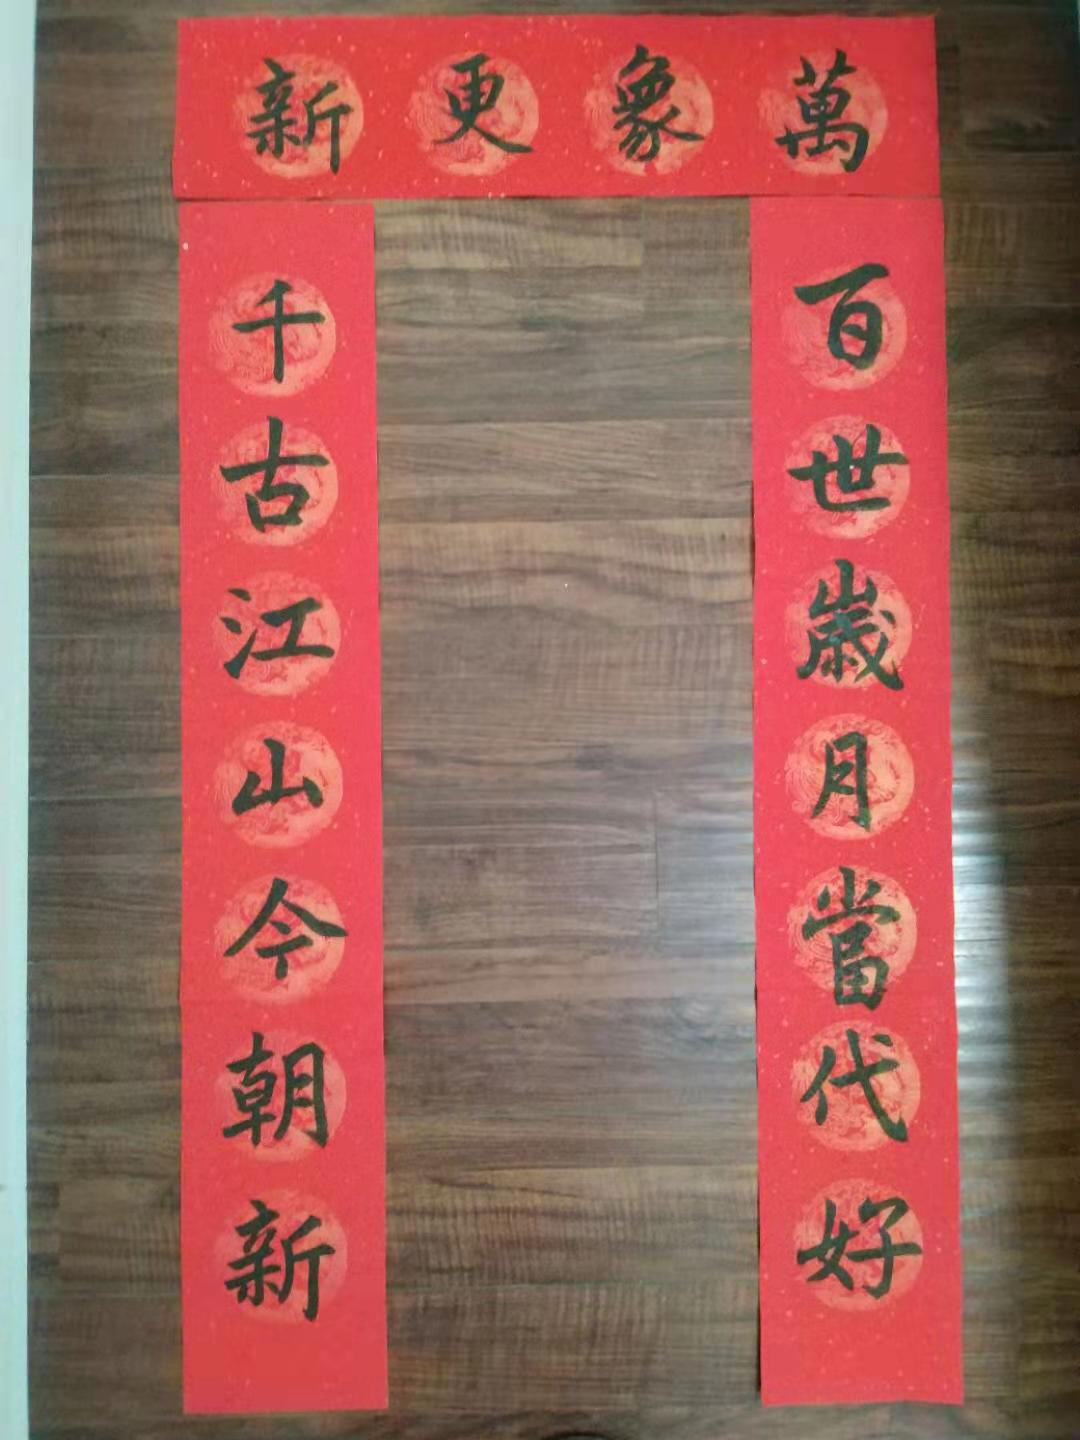 萬象更新
百世歲月當代好
千古江山今朝新